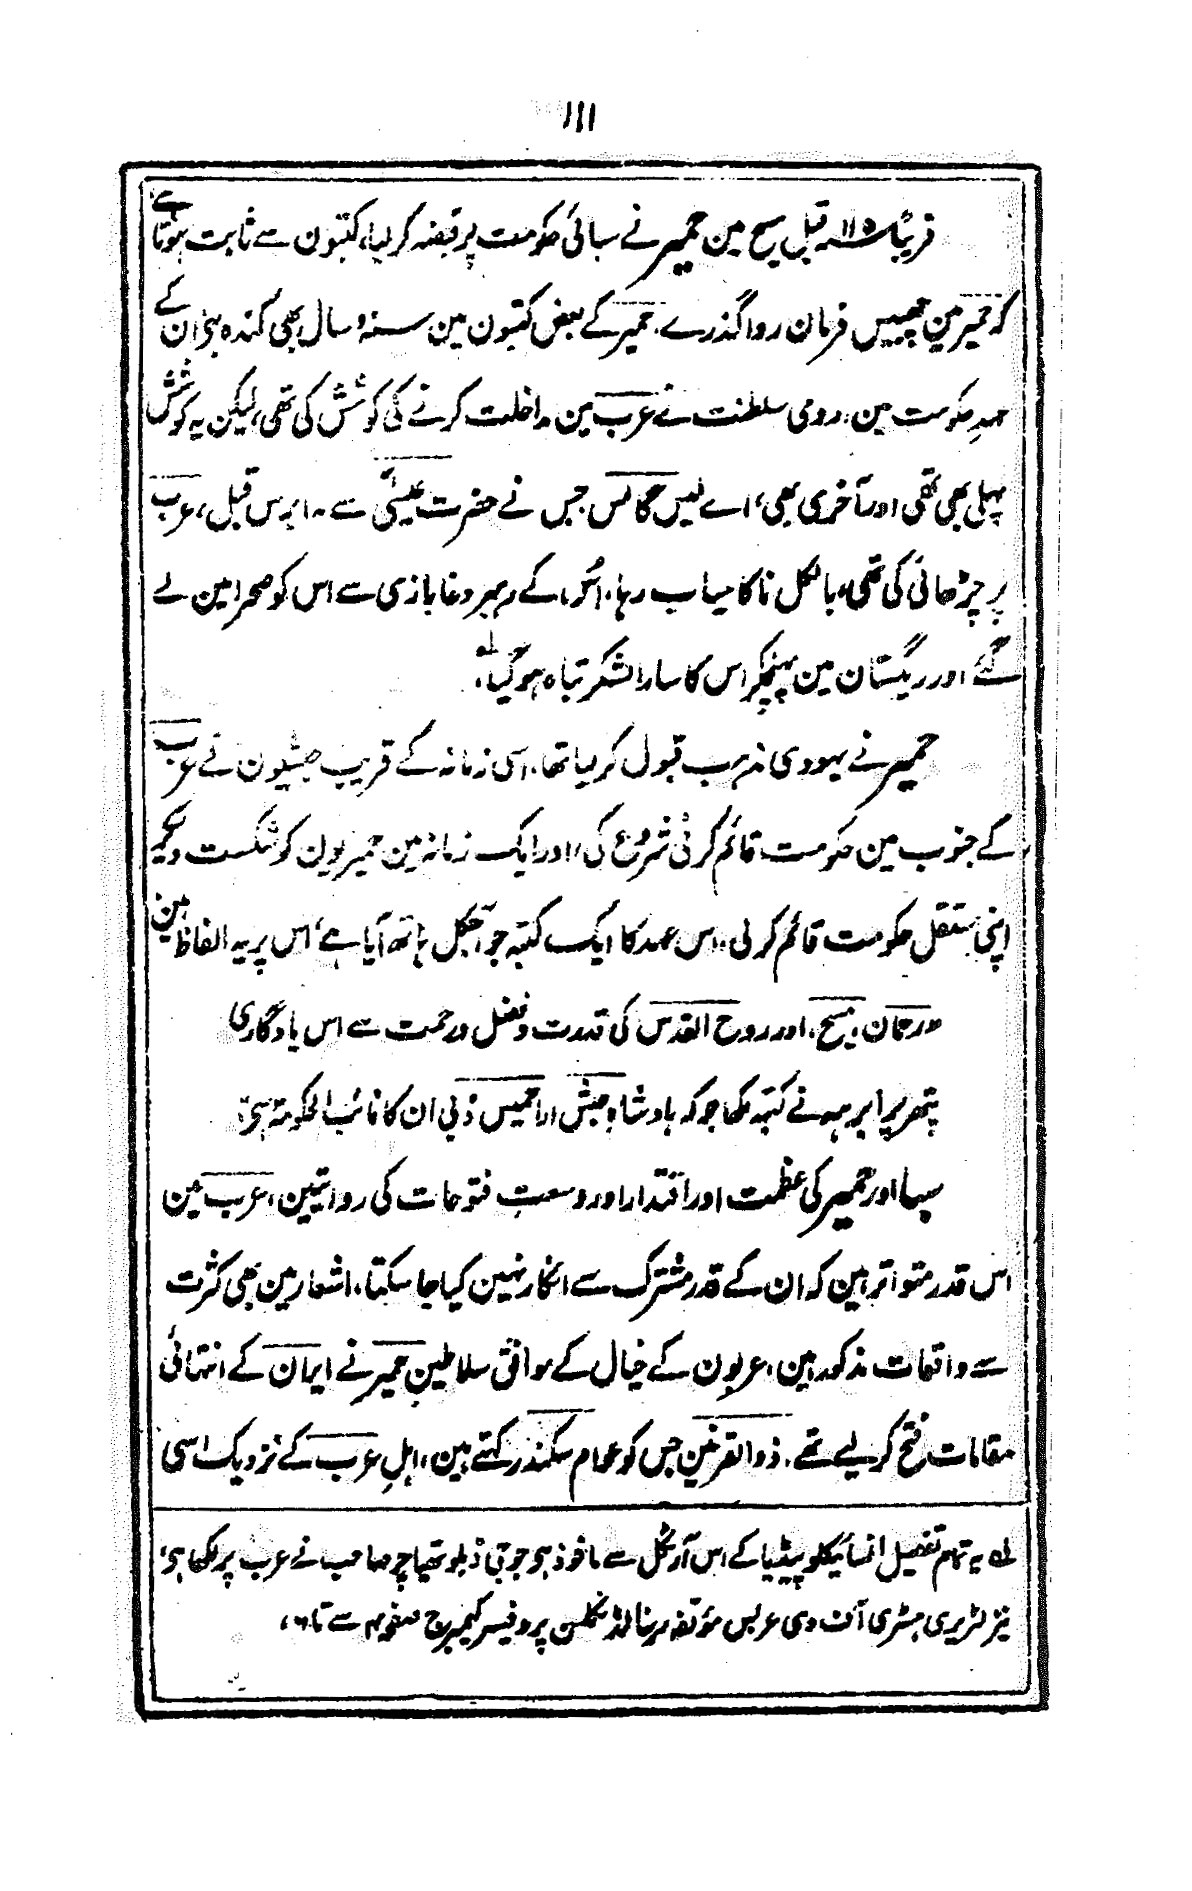 ۱۱۱
قریباً ۱۱۵ قبل مسیح مین حمیر نے سبائی حکومت پر قبضہ کر لیا، کتبون سے ثابت ہوتا ہے
کہ حمیر مین چھبیس فرمان روا گذرے، حمیر کے بعض کتبون مین سنہ و سال بھی کندہ ہی، ان کے
عہدِ حکومت مین، رومی سلطنت نے عرب مین مداخلت کرنے کی کوشش کی تھی، لیکن یہ کوشش
پہلی بھی تھی اور آخری بھی، اے لیس گالس جس نے حضرت عیسیٰؑ سے ۱۰ برس قبل، عرب
پر چڑھائی کی تھی، بالکل ناکامیاب رہا، اس کے رہبر دغابازی سے اس کو صحرا مین لے
گئے اور ریگستان مین پہنچکر اس کا سارا لشکر تباہ ہو گیا،
حمیر نے یہودی مذہب قبول کر لیا تھا، اسی زمانہ کے قریب حبشیون نے عرب
کے جنوب مین حکومت قائم کرنی شروع کی، اور ایک زمانہ مین حمیریون کو شکست دیکر
اپنی مستقل حکومت قائم کر لی، اس عہد کا ایک کتبہ جو آجکل ہاتھ آیا ہے، اس پر یہ الفاظ ہین
"رحمان، مسیح، اور روح القدس کی قدرت و فضل و رحمت سے اس یادگاری
پتھر پر ابرہہ نے کتبہ لکھا جو کہ بادشاہِ حبش اراحمیس ذبی ان کا نائب الحکومۃ ہی،
سبا اور حمیر کی عظمت اور اقتدار اور وسعت فتوحات کی روایتین، عرب مین
اس قدر متواتر ہین کہ ان کے قدر مشترک سے انکار نہین کیا جا سکتا، اشعار مین بھی کثرت
سے واقعات مذکور ہین، عربون کے خیال کے موافق سلاطینِ حمیر نے ایران کے انتہائی
مقامات فتح کر لیے تھے، ذوالقرنین جس کو عوام سکندر کہتے ہین، اہلِ عرب کے نزدیک اسی
لہ یہ تمام تفصیل انسائیکلوپیڈیا کے اس آرٹکل سے ماخوذ ہی جو جی ڈبلو تھیاچر صاحب نے عرب پر لکھا ہی،
نیز لٹریری ہسٹری آف دی عربس مؤلفہ رینالڈ نکلسن پروفیسر کیمبرج صفحہ ۴ سے تا ۶،